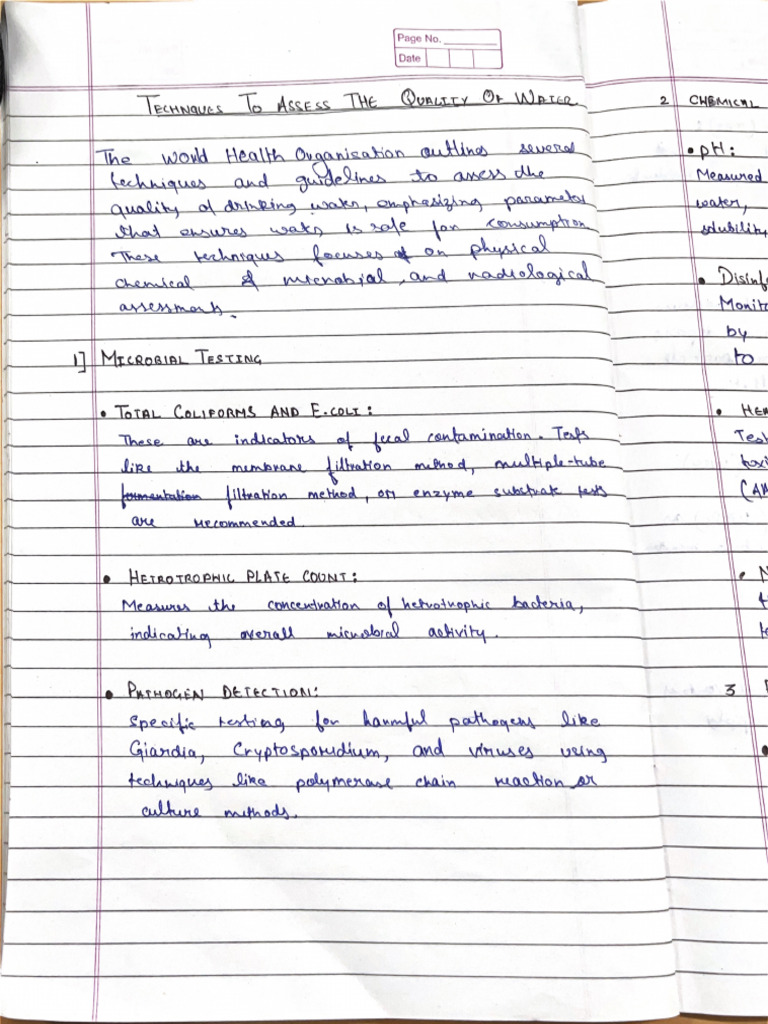 Page No.
Date
TECHNIQUES TO ASSESS THE QUALITY OF WATER
The World Health Organisation outlines several
techniques and guidelines to assess the
quality of drinking water, emphasizing parameter
that ensures water is safe for consumption
These techniques focuses on physical
chemical & microbial, and radiological
assessments.
1] MICROBIAL TESTING
• TOTAL COLIFORMS AND E.COLI:
These are indicators of fecal contamination. Tests
like the membrane filtration method, multiple-tube
fermentation filtration method, or enzyme substrate tests
are recommended.
• HETROTROPHIC PLATE COUNT:
Measures the concentration of hetrotrophic bacteria,
indicating overall microbial activity.
• PATHOGEN DETECTION:
Specific testing for harmful pathogens like
Giardia, Cryptosporidium, and viruses using
techniques like polymerase chain reaction or
culture methods.
2 CHEMICAL
• pH:
Measured
water,
solubility
• Disinf
Monito
by
to
• HE
Test
toxi
(AA
3